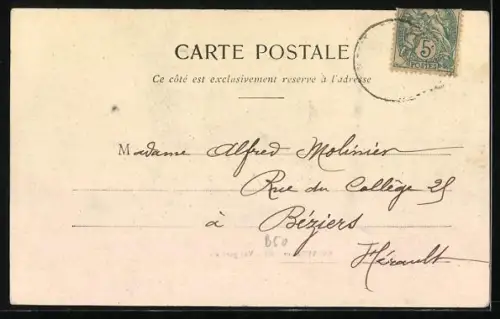 CARTE POSTALE
Ce côté est exclusivement reserve à l'adresse
5c
POSTES
Madame Alfred Molinier
Rue du Collège 25
à Béziers
B50
Hérault